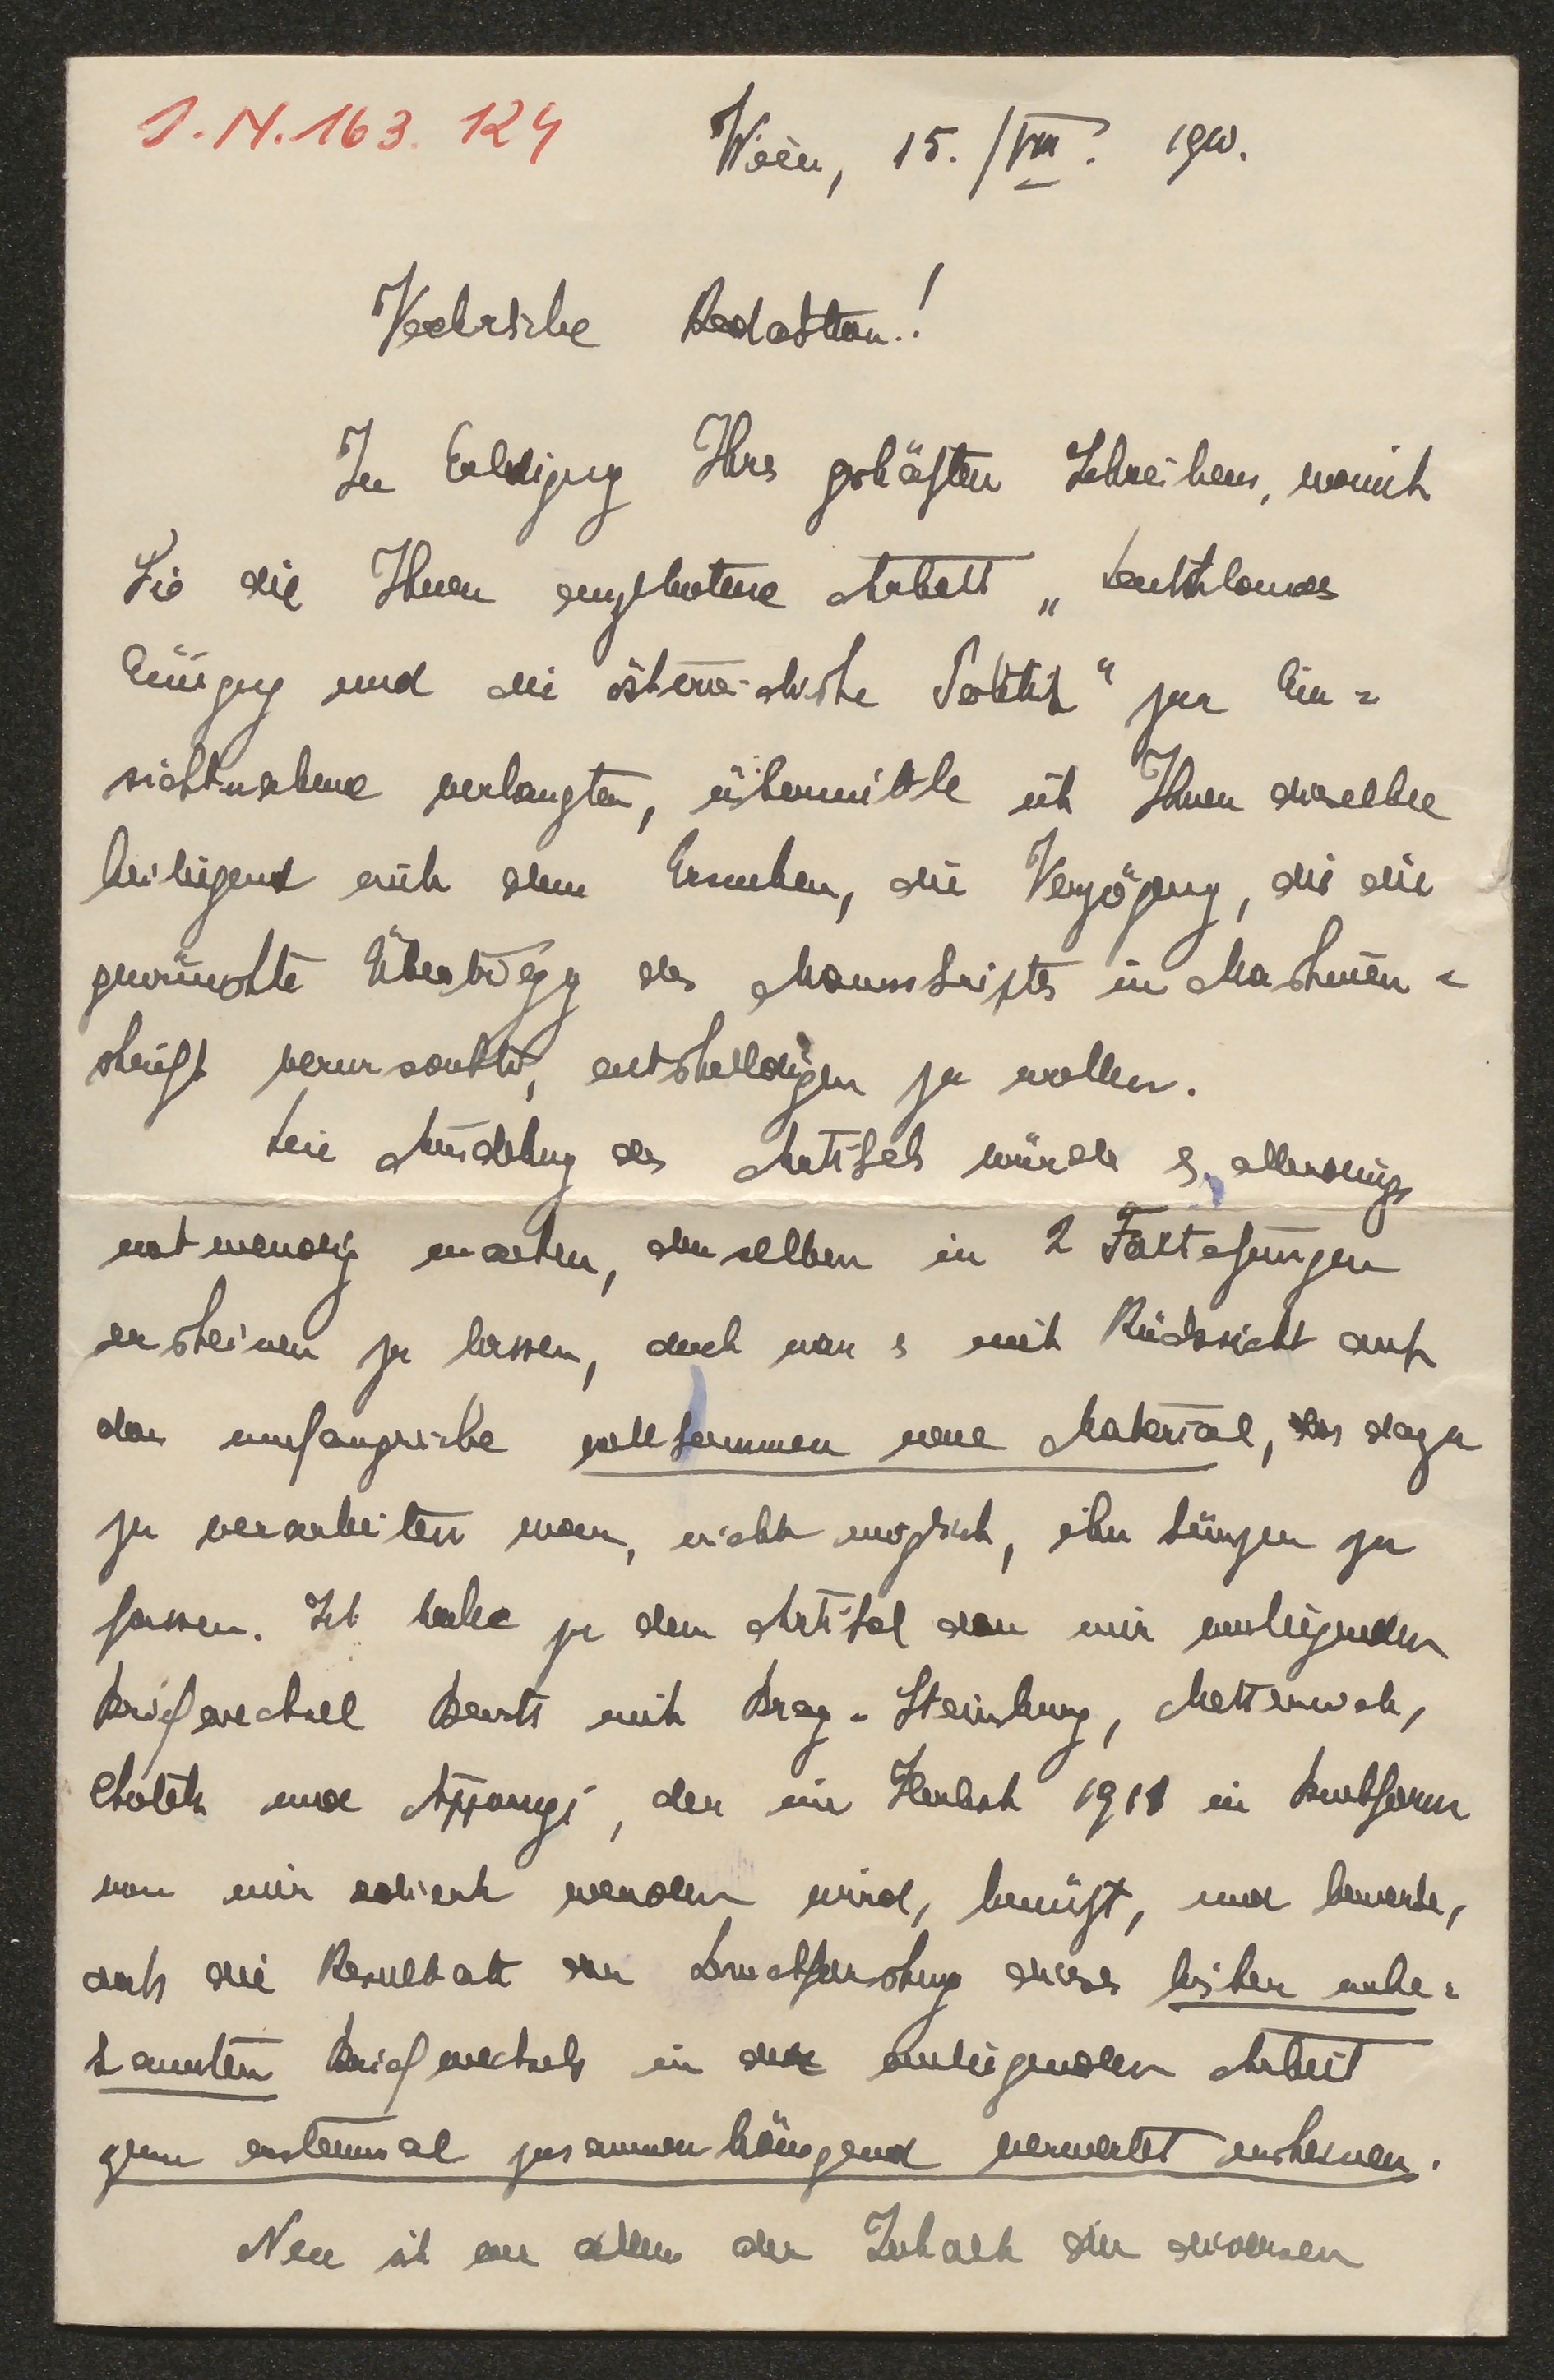 I. N. 163. 124
Wien, 15./VIII. 19
Verehrliche Redaktion!
In Erledigung Ihres geschätzten Schreibens, womit
Sie die Ihnen angebotene Arbeit „Deutschlands
Einigung und die österreichische Politik" zur Ein=
sichtnahme verlangten, übermittle ich Ihnen dieselbe
beiliegend mit dem Ersuchen, die Verzögerung, die die
gewünschte Übertragung des Manuskriptes in Maschinen=
schrift verursachte, entschuldigen zu wollen.
Die Ausdehnung des Artikels würde es allerdings
notwendig machen, denselben in 2 Fortsetzungen
erscheinen zu lassen, doch war es mit Rücksicht auf
das umfangreiche vollkommen neue Material, das dazu
zu verarbeiten war, nicht möglich, ihn kürzer zu
fassen. Ich habe zu dem Artikel den mir vorliegenden
Briefwechsel Beusts mit Bray-Steinburg, Metternich,
Chotek und Apponyi, der im Herbst 1911 in Buchform
von mir ediert werden wird, benützt, und bemerke,
daß die Resultate der Durchforschung dieses bisher unbe=
kannten Briefwechsels in der vorliegenden Arbeit
zum erstenmal zusammenhängend verwertet erscheinen.
Neu ist vor allem der Inhalt der